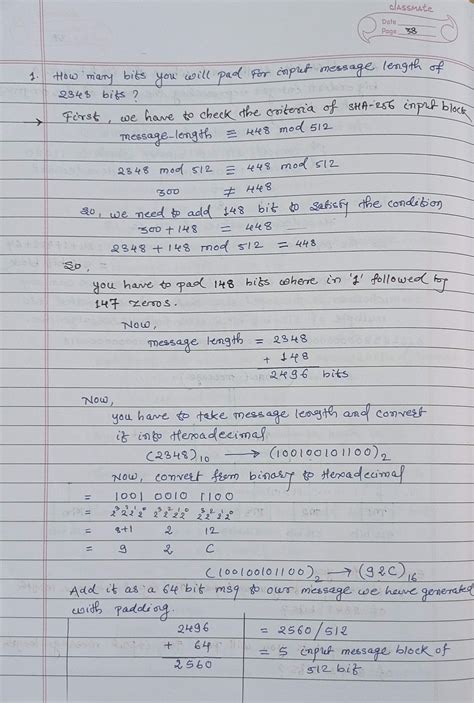 classmate
Date
Page 38
1. How many bits you will pad for input message length of
2348 bits ?
→ First, we have to check the criteria of SHA-256 input block
message-length ≡ 448 mod 512
2348 mod 512 ≡ 448 mod 512
300 ≠ 448
So, we need to add 148 bit to satisfy the condition
300 + 148 = 448
2348 + 148 mod 512 = 448
So, =
you have to pad 148 bits where in '1' followed by
147 zeros.
Now,
message length = 2348
+ 148
2496 bits
Now,
you have to take message length and convert
it into Hexadecimal
(2348)₁₀ → (100100101100)₂
Now, convert from binary to Hexadecimal
= 1001 0010 1100
= 2³2²2¹2⁰ 2³2²2¹2⁰ 2³2²2¹2⁰
= 8+1 2 12
= 9 2 C
(100100101100)₂ → (92C)₁₆
Add it as a 64 bit msg to our message we have generated
with padding.
2496 = 2560/512
+ 64 = 5 input message block of
2560 512 bit